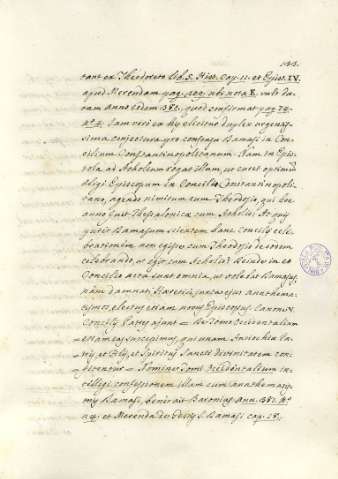 tant ex Theodoreto lib. 5. Hist. cap. 11. et Epist. IV.
apud Merendam pag. ubi nota 8. sub da-
tam anno eodem 382. quod confirmat pag. 74.
nº 4. Jam vero ex hy elicitur duplex urgentis-
sima conjectura pro confessa Damasi in Con-
cilium Constantinopolitanum. Jam in Epis-
tola ad Acholium rogat illum, ut curet optimum
eligi Episcopum in Concilio Constantinopoli-
tano, agendo nimirum cum Theodosio, qui hoc
anno fuit Thessalonicae cum Acholio. At qui
Damasum scientem hanc concilij cele-
brationem non egisse cum Theodosio de eodem
celebrando, ut egit cum Acholio? Deinde in eo
Concilio acta sunt omnia, ut volebat Damasus,
nam damnati Haeretici, juxta ejus anathema-
tismos, electus etiam novus Episcopus. Canon V.
Concilij Patres ajunt = De Tomo Occidentalium
etiam eos suscepimus, qui unam Antiochiae Pa-
tris, et Filij, et Spiritus Sancti divinitatem con-
fitentur = Nomine Tomi Occidentalium in-
telligi confessionem illam cum anathematis-
mis Damasi, Baronius ann. 381. nº
et Merenda in Gestis S. Damasi cap. 18.